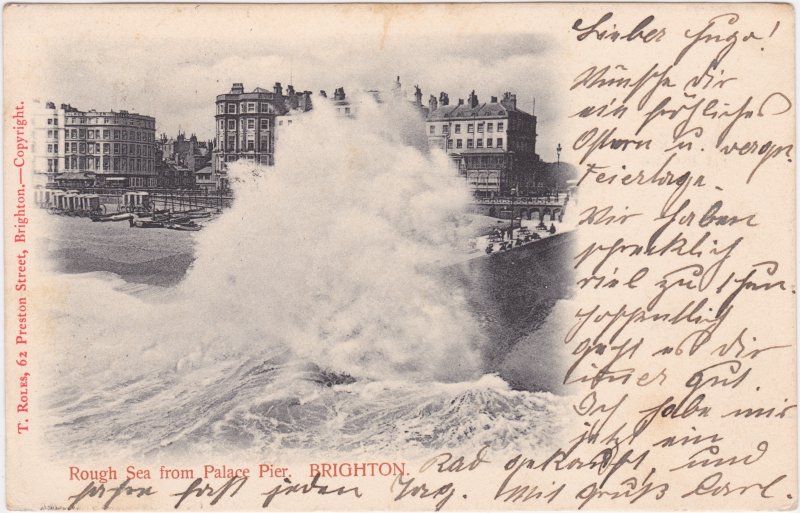 T. Roles, 62 Preston Street, Brighton.—Copyright.
Lieber Hugo!
Wünsche Dir
ein fröhliches
Ostern u. vergn.
Feiertage.
Wir haben
schrecklich
viel zu thun.
Hoffentlich
geht es Dir
immer gut.
Ich habe mir
jetzt ein
Rad gekauft und
fahre fast jeden Tag. Mit Gruß Carl.
Rough Sea from Palace Pier. BRIGHTON.